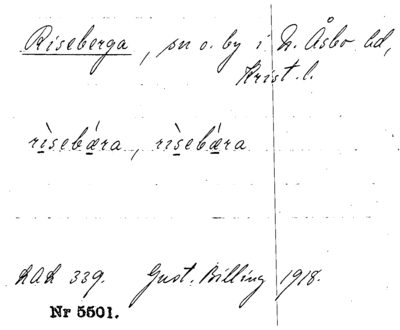 Riseberga, sn o. by i N. Åsbo hd,
Krist. l.
rìsebǽra, rìsebǽra
LAL 339. Gust. Billing 1918.
Nr 5501.